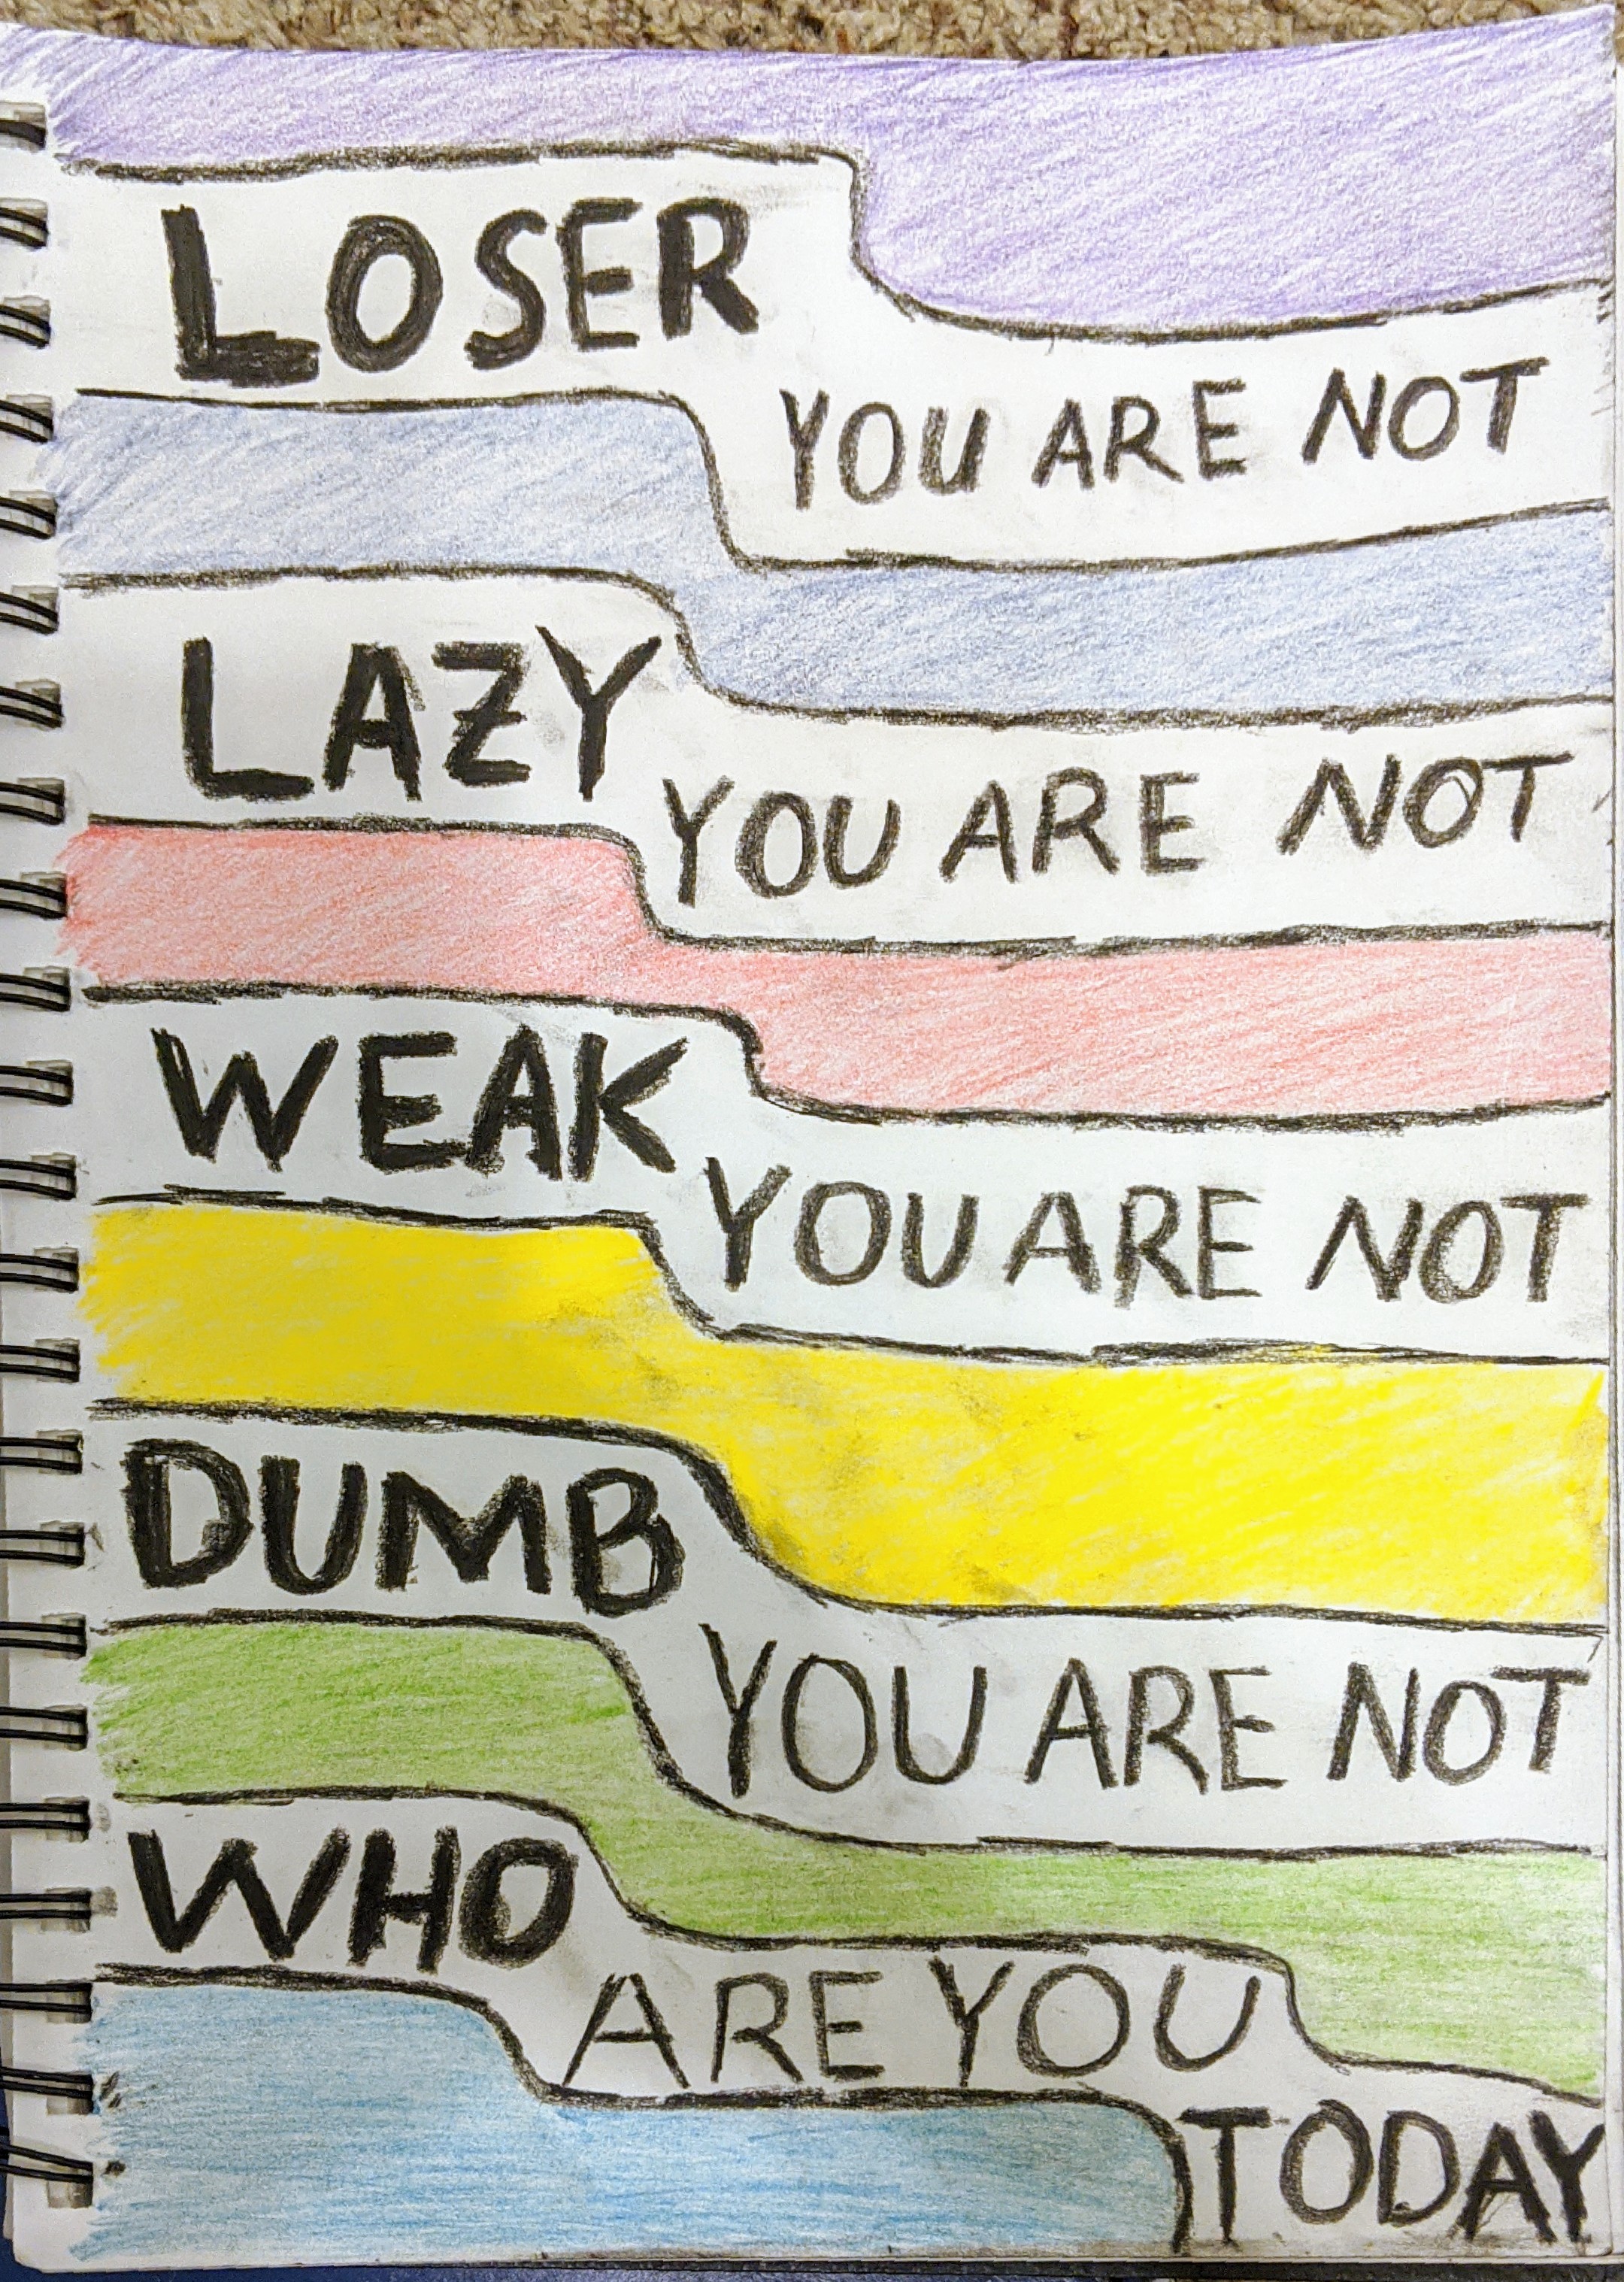 LOSER
YOU ARE NOT
LAZY
YOU ARE NOT
WEAK
YOU ARE NOT
DUMB
YOU ARE NOT
WHO
ARE YOU
TODAY